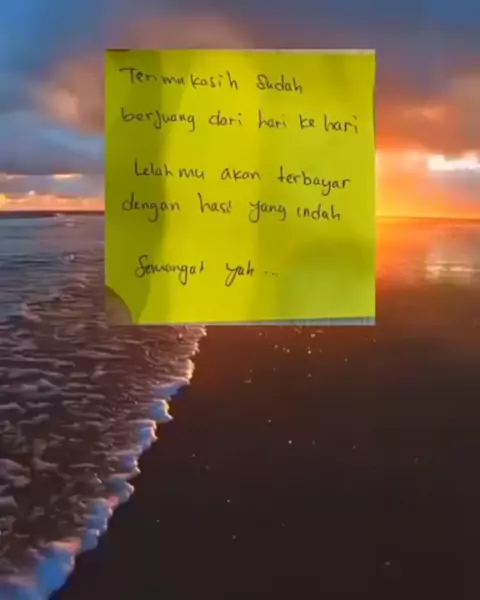 Terimakasih Sudah
berjuang dari hari ke hari
Lelah mu akan terbayar
dengan hasil yang indah
Semangat yah ...